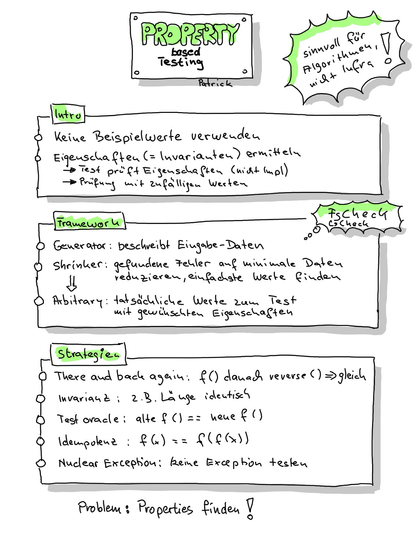 PROPERTY
based
Testing
Patrick
sinnvoll für
Algorithmen,
nicht Infra!
Intro
Keine Beispielwerte verwenden
Eigenschaften (= Invarianten) ermitteln
→ Test prüft Eigenschaften (nicht Impl)
→ Prüfung mit zufälligen Werten
FsCheck
Framework
Generator: beschreibt Eingabe-Daten
Shrinker: gefundene Fehler auf minimale Daten
reduzieren, einfachste Werte finden
Arbitrary: tatsächliche Werte zum Test
mit gewünschten Eigenschaften
Strategien
There and back again: f() danach reverse() ⇒ gleich
Invarianz: z.B. Länge identisch
Test oracle: alte f() == neue f()
Idempotenz: f(x) == f(f(x))
Nuclear Exception: keine Exception testen
Problem: Properties finden!